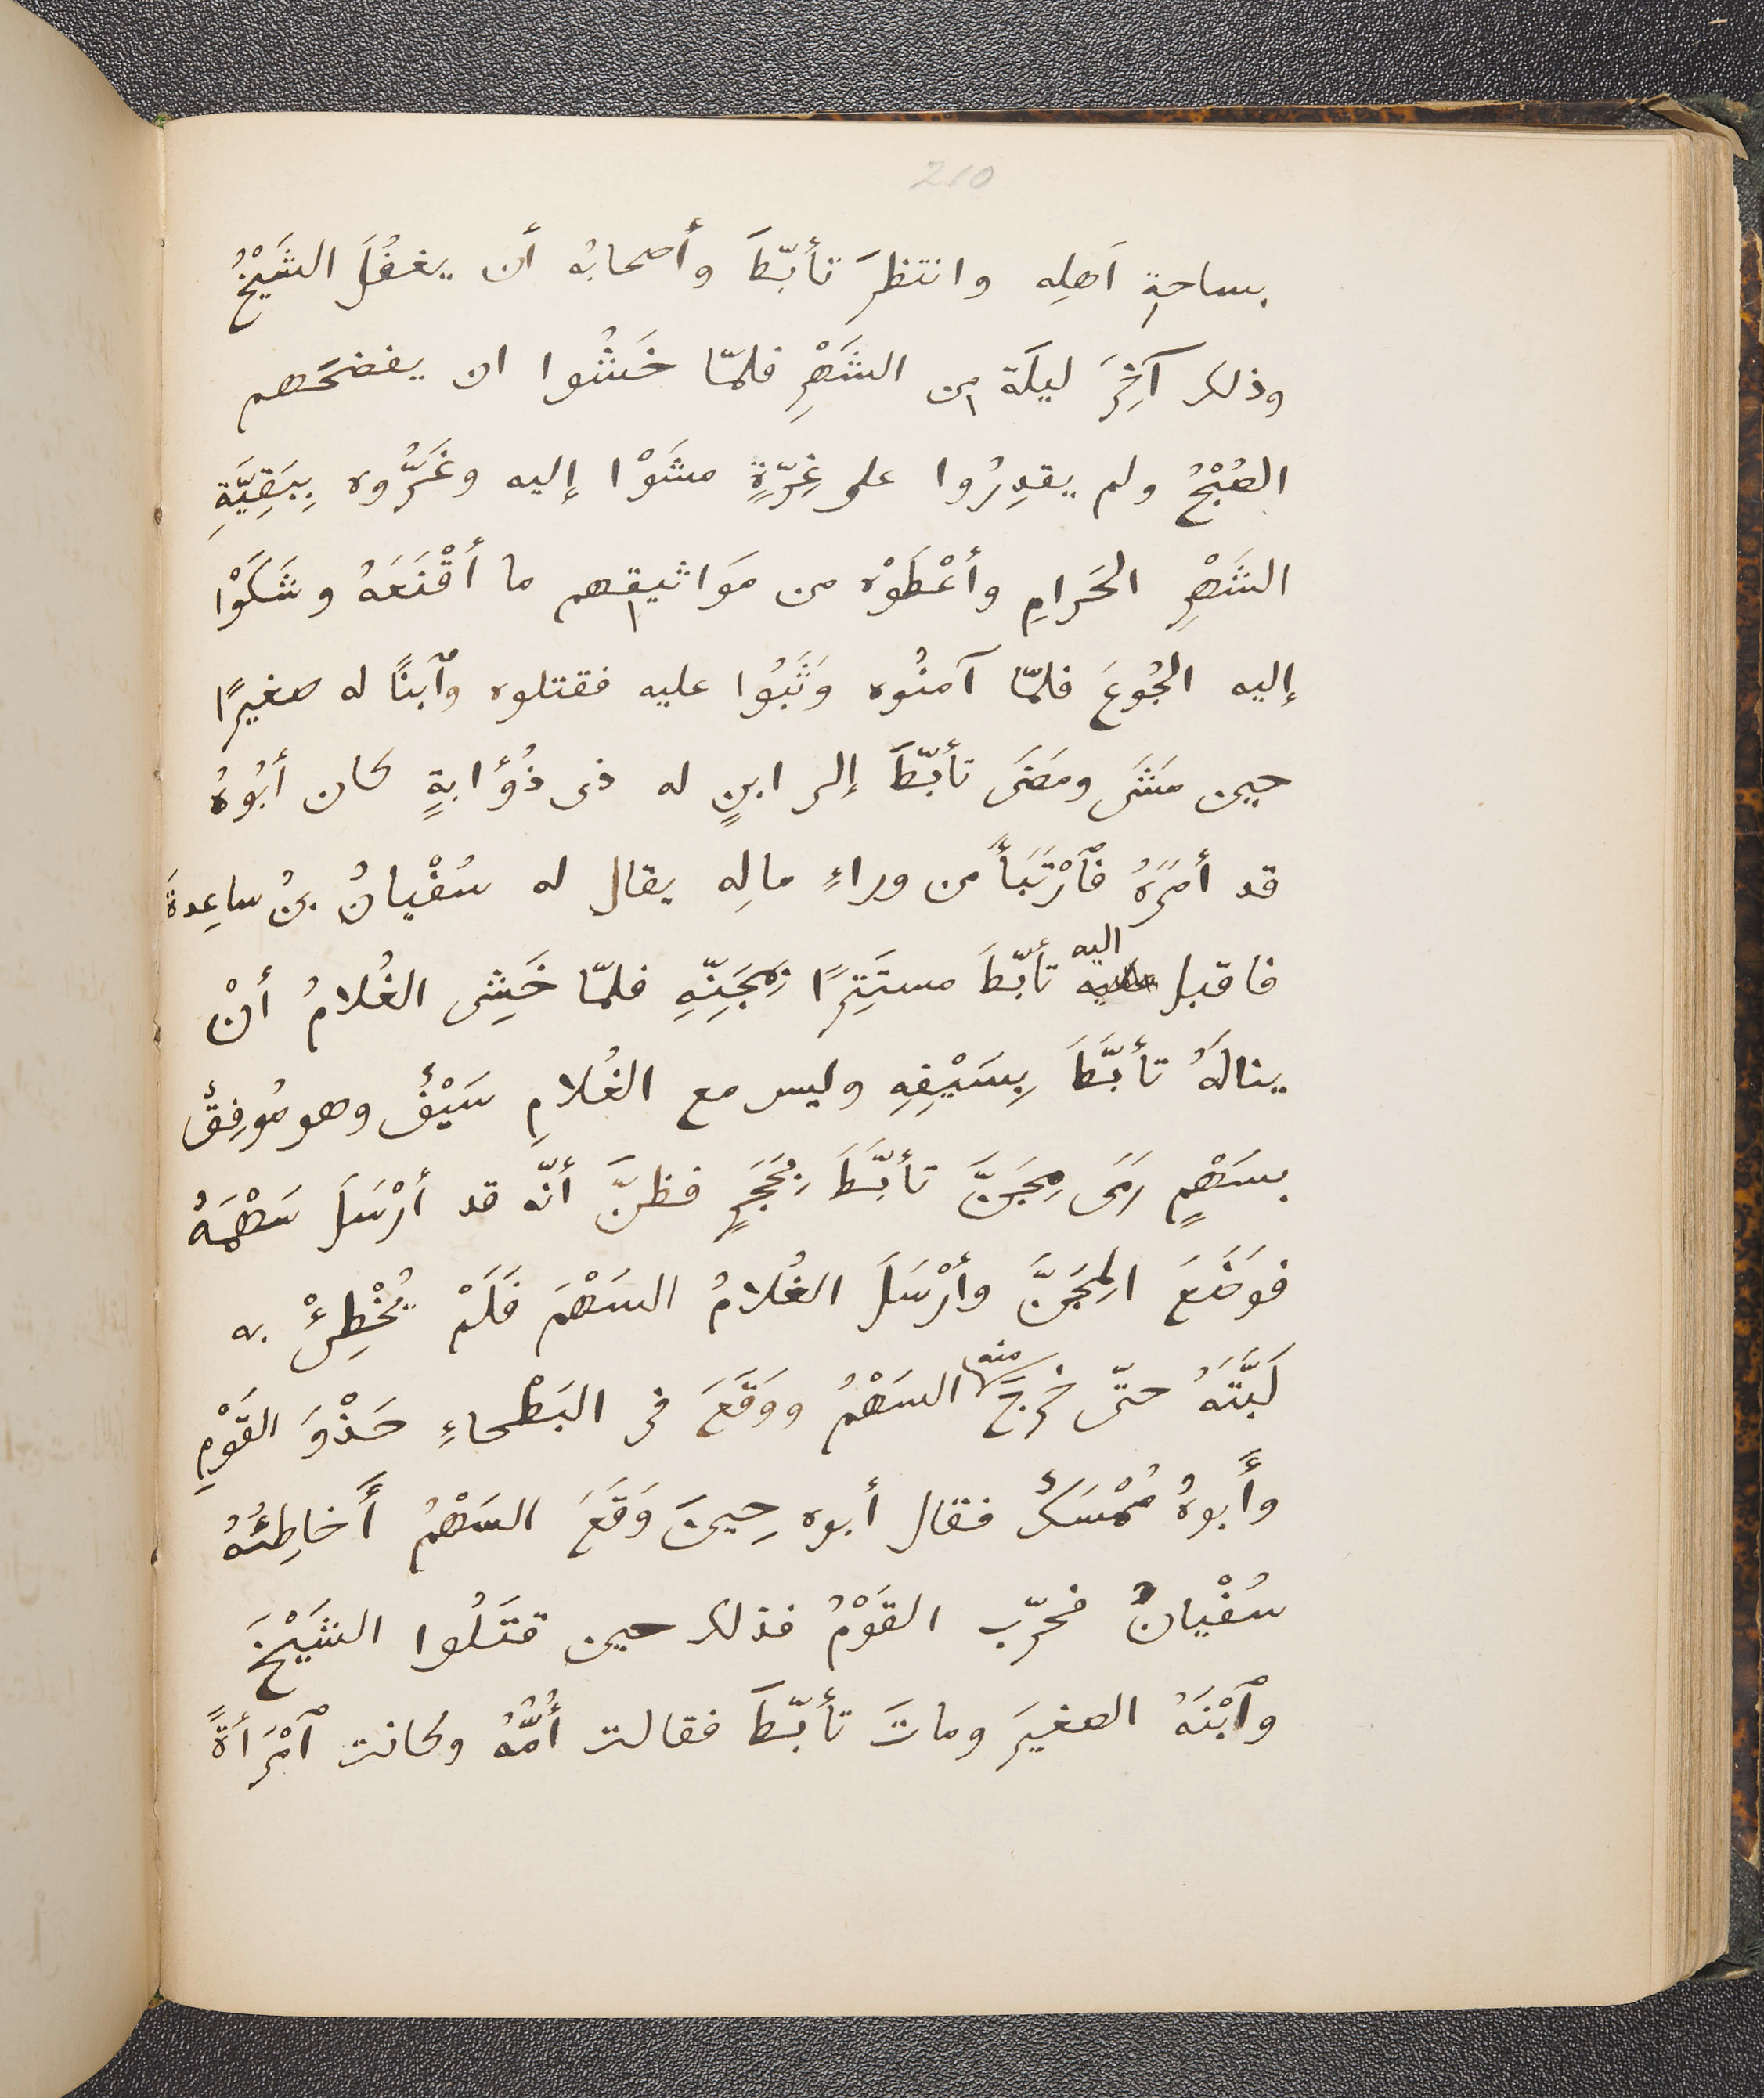 210
بساحةِ اَهلِه وانتظرَ تأبّطَ وأصحابُه أن يغفُلَ الشَيْخُ
وذلك آخِرَ ليلَة مِن الشَهْرِ فلمّا خَشُوا ان يفضحَهم
الصُبْحُ ولم يقدِرُوا على غِرّةٍ مشَوْا إليه وغَرُّوه بِبَقِيَّةِ
الشَهْرِ الحَرامِ وأعْطَوْه من مَوَاثيقِهم ما أقْنَعَهُ وشَكَوْا
إليه الجُوعَ فلمّا آمنُوه وَثَبُوا عليه فقتلوه وٱبنًا له صغيرًا
حين مَشَى ومَضَى تأبّطَ إلى ابنٍ له ذى ذُؤابةٍ كان أبُوهُ
قد أمَرَهُ فَٱرْتَبَأَ من وراءِ مالِه يقال له سُفْيانُ بنُ ساعِدةَ
فاقبل اليه تأبّطَ مستَتِرًا بمَجَنِّهِ فلمّا خَشِى الغُلامُ أنْ
ينالَهُ تأبَّطَ بِسَيْفِهِ وليس مع الغُلامِ سَيْفٌ وهو مُوفِقٌ
بسَهْمٍ رَمَى مِجَنَّ تأبَّطَ بِحَجَرٍ فظنَّ أنّه قد أرْسَلَ سَهْمَهُ
فوَضَعَ المِجَنَّ وأرْسَلَ الغُلامُ السَهْمَ فَلَمْ يُخْطِئْ به
لَبَّتَهُ حتّى خرجَ منه السَهْمُ ووَقَعَ فى البَطْحاءِ حَذْوَ القَوْمِ
وأَبوهُ مُمْسَكٌ فقال أبوه حِينَ وَقَعَ السَهْمُ أَخاطِئُهُ
سُفْيانُ فحرّب القَوْمُ فذلك حين قتَلُوا الشَيْخَ
وٱبْنَهُ الصغيرَ وماتَ تأبّطَ فقالت أُمُّهُ وكانت ٱمْرَأةً